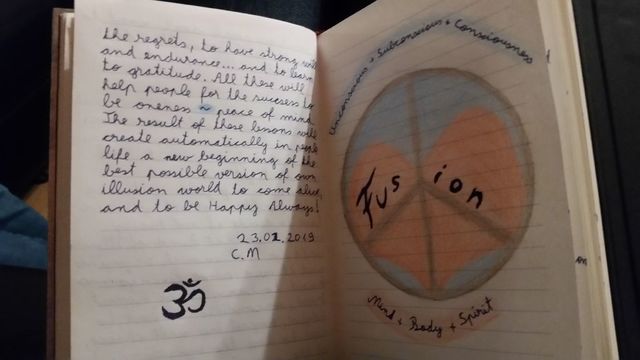 the regrets, to have strong will
and endurance... and to learn
to gratitude. All these will
help people for the success to
be oneness ~ peace of mind.
The result of these lessons will
create automatically in people
life a new beginning of the
best possible version of own
illusion world to come alive
and to be Happy Always!
23.01.2019
C.M
ॐ
Unconscious + Subconscious + Consciousness
Fusion
Mind + Body + Spirit